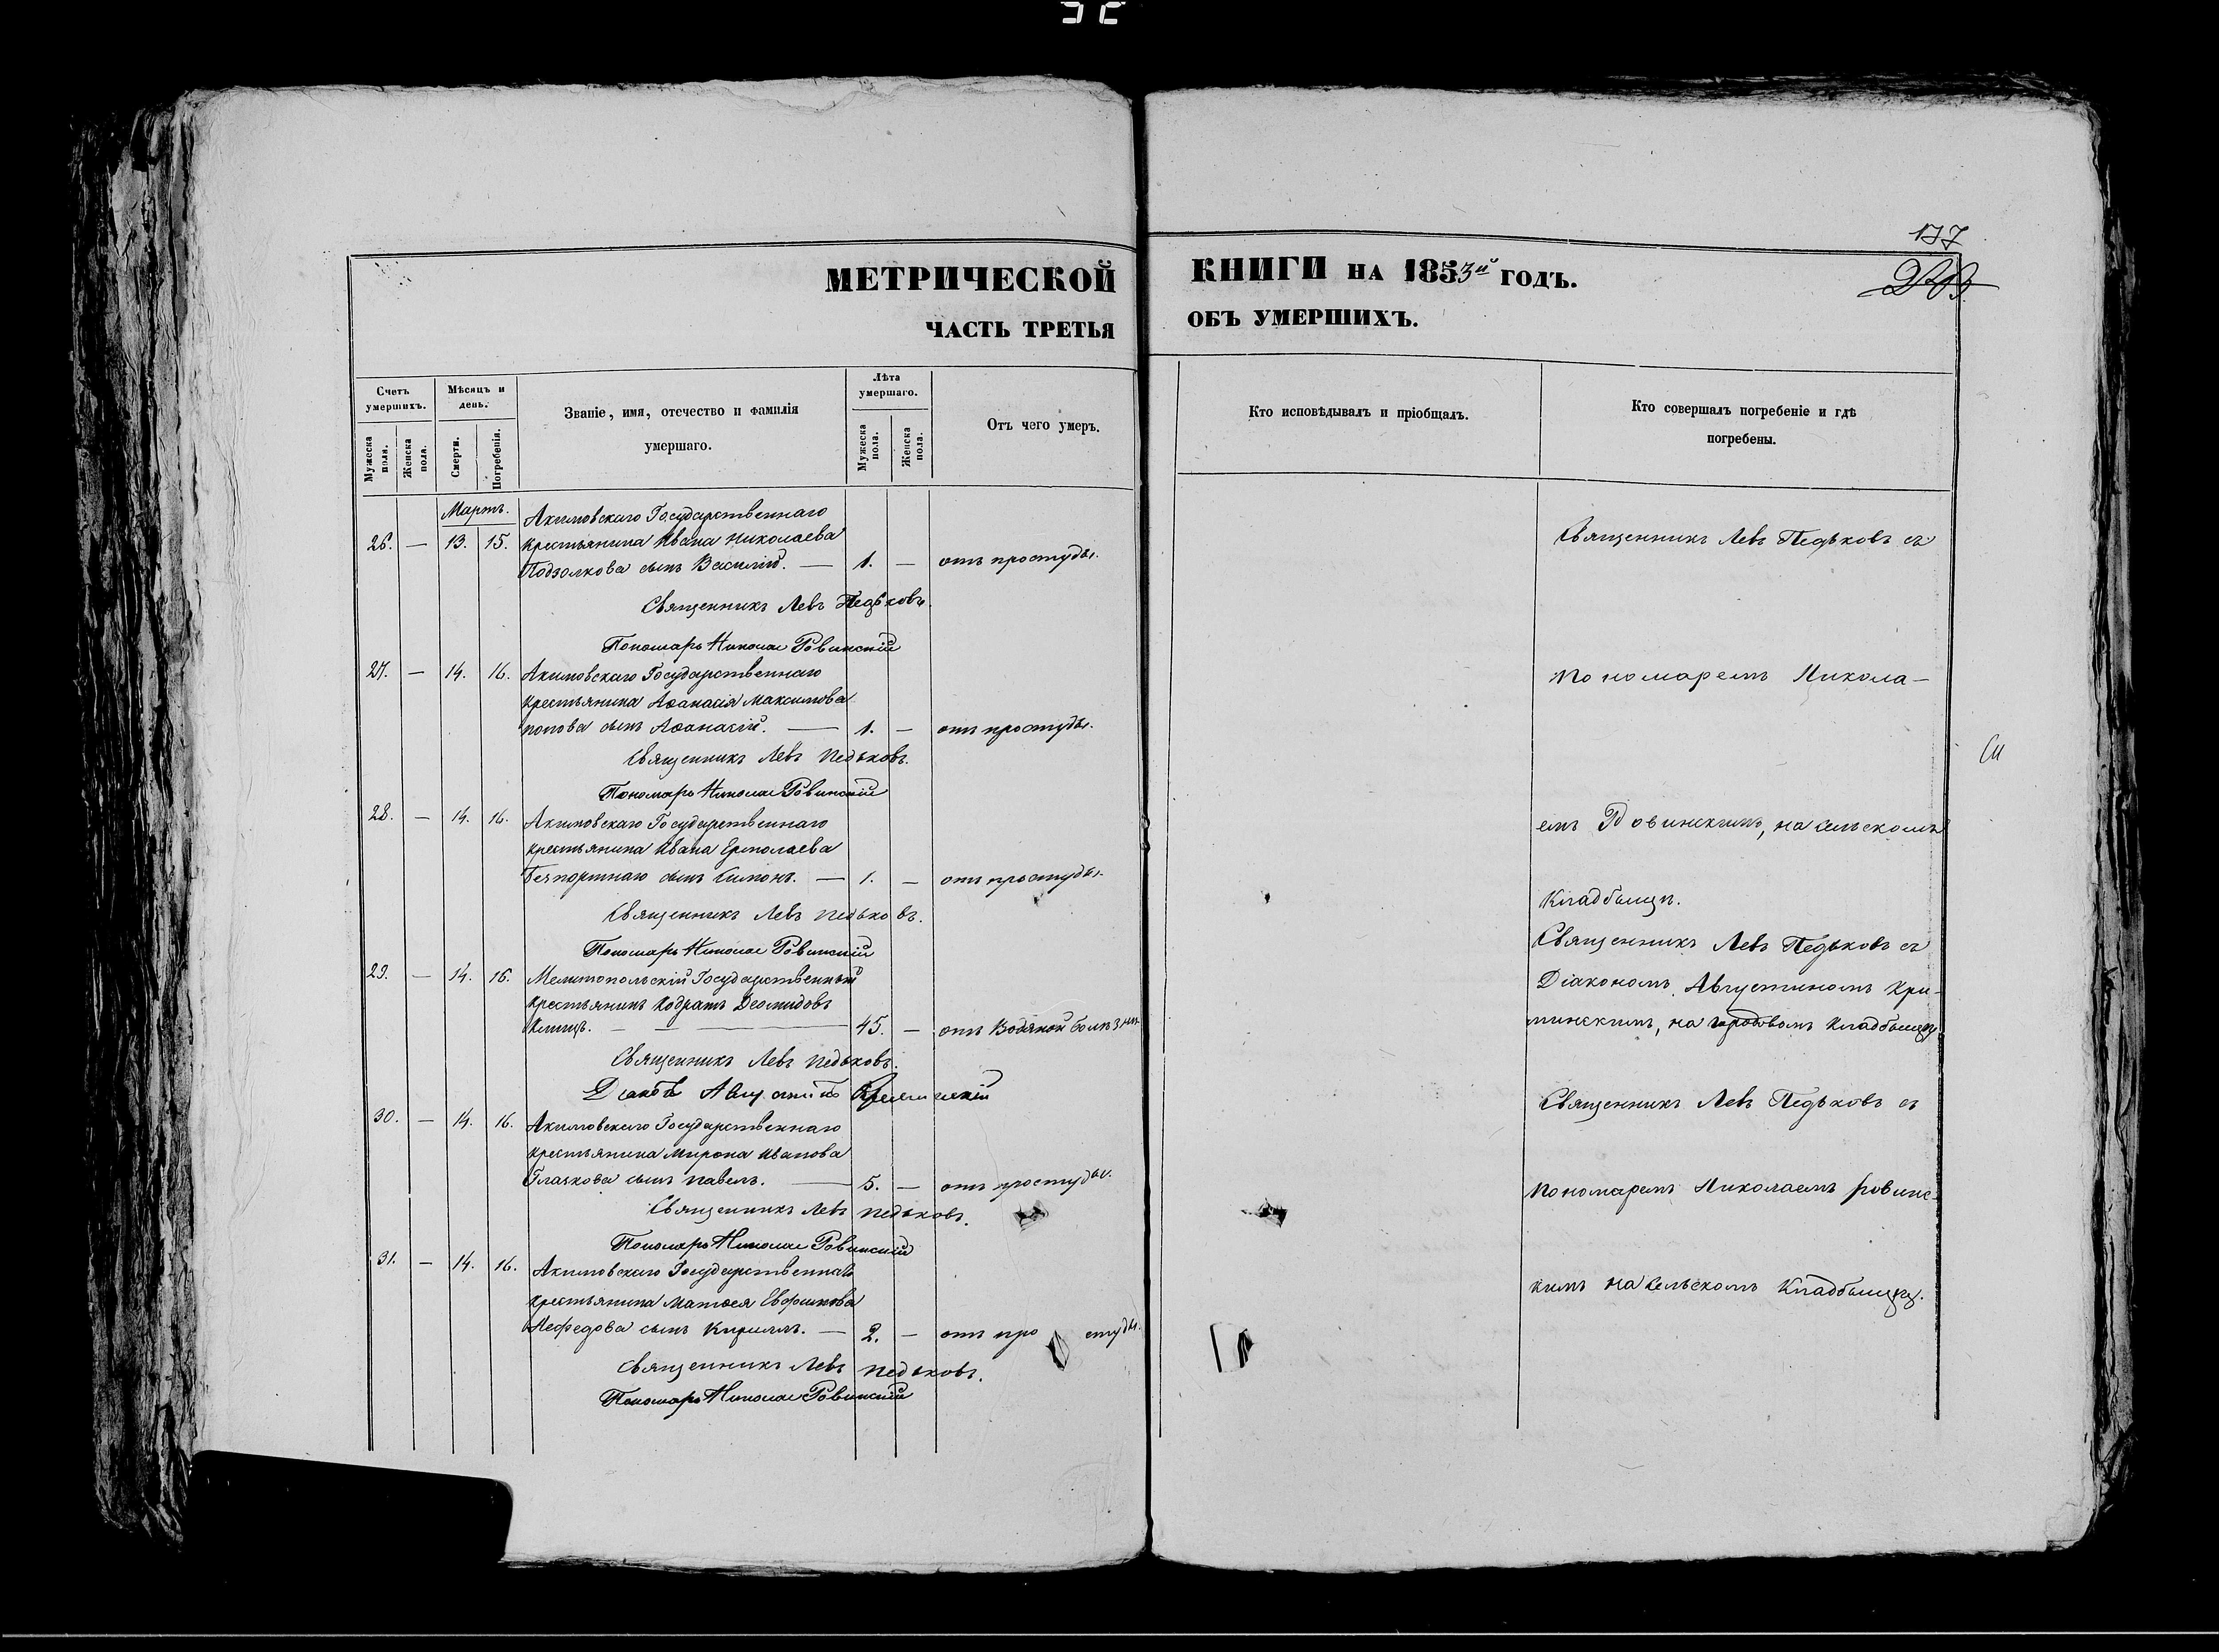 177
МЕТРИЧЕСКОЙ КНИГИ НА 1853й ГОДЪ.
ЧАСТЬ ТРЕТЬЯ ОБЪ УМЕРШИХЪ.
Счетъ умершихъ.
Мужеска пола.
Женска пола.
Мѣсяцъ и день.
Смерти.
Погребенія.
Званіе, имя, отечество и фамилія
умершаго.
Лѣта умершаго.
Мужеска пола.
Женска пола.
Отъ чего умеръ.
Кто исповѣдывалъ и пріобщалъ.
Кто совершалъ погребеніе и гдѣ
погребены.
Мартъ.
Акимовскаго Государственнаго
26. — 13. 15. крестьянина Ивана Николаева
Подзолкова сынъ Василій. — 1. — отъ простуды.
Священникъ Левъ Педьковъ.
Пономарь Николае Ровинскій
27. — 14. 16. Акимовскаго Государственнаго
крестьянина Аѳанасія Максимова
попова сынъ Аѳанасій. — 1. — отъ простуды.
Священникъ Левъ Педьковъ.
Пономарь Николае Ровинскій
28. — 14. 16. Акимовскаго Государственнаго
крестьянина Ивана Ермолаева
сынъ Симонъ. — 1. — отъ простуды.
Священникъ Левъ Педьковъ.
Пономарь Николае Ровинскій
29. — 14. 16. Мелитопольскій Государственный
крестьянинъ Кодратъ Деомидовъ
— 45. — отъ Водяной болѣзни
Священникъ Левъ Педьковъ.
30. — 14. 16. Акимовскаго Государственнаго
крестьянина Мирона Иванова
Глазкова сынъ Павелъ. — 5. — отъ простуды.
Священникъ Левъ Педьковъ.
Пономарь Николае Ровинскій
31. — 14. 16. Акимовскаго Государственнаго
крестьянина Матѳея Евфимова
Нефедова сынъ Кириллъ. — 2. — отъ простуды.
Священникъ Левъ Педьковъ.
Пономарь Николае Ровинскій
Священникъ Левъ Педьковъ съ
Пономаремъ Никола-
емъ Ровинскимъ, на сельскомъ
Кладбищѣ.
Священникъ Левъ Педьковъ съ
Діакономъ Августиномъ Кри-
минскимъ, на городовомъ Кладбищѣ.
Священникъ Левъ Педьковъ съ
Пономаремъ Николаемъ Ровинс-
кимъ на сельскомъ Кладбищѣ.